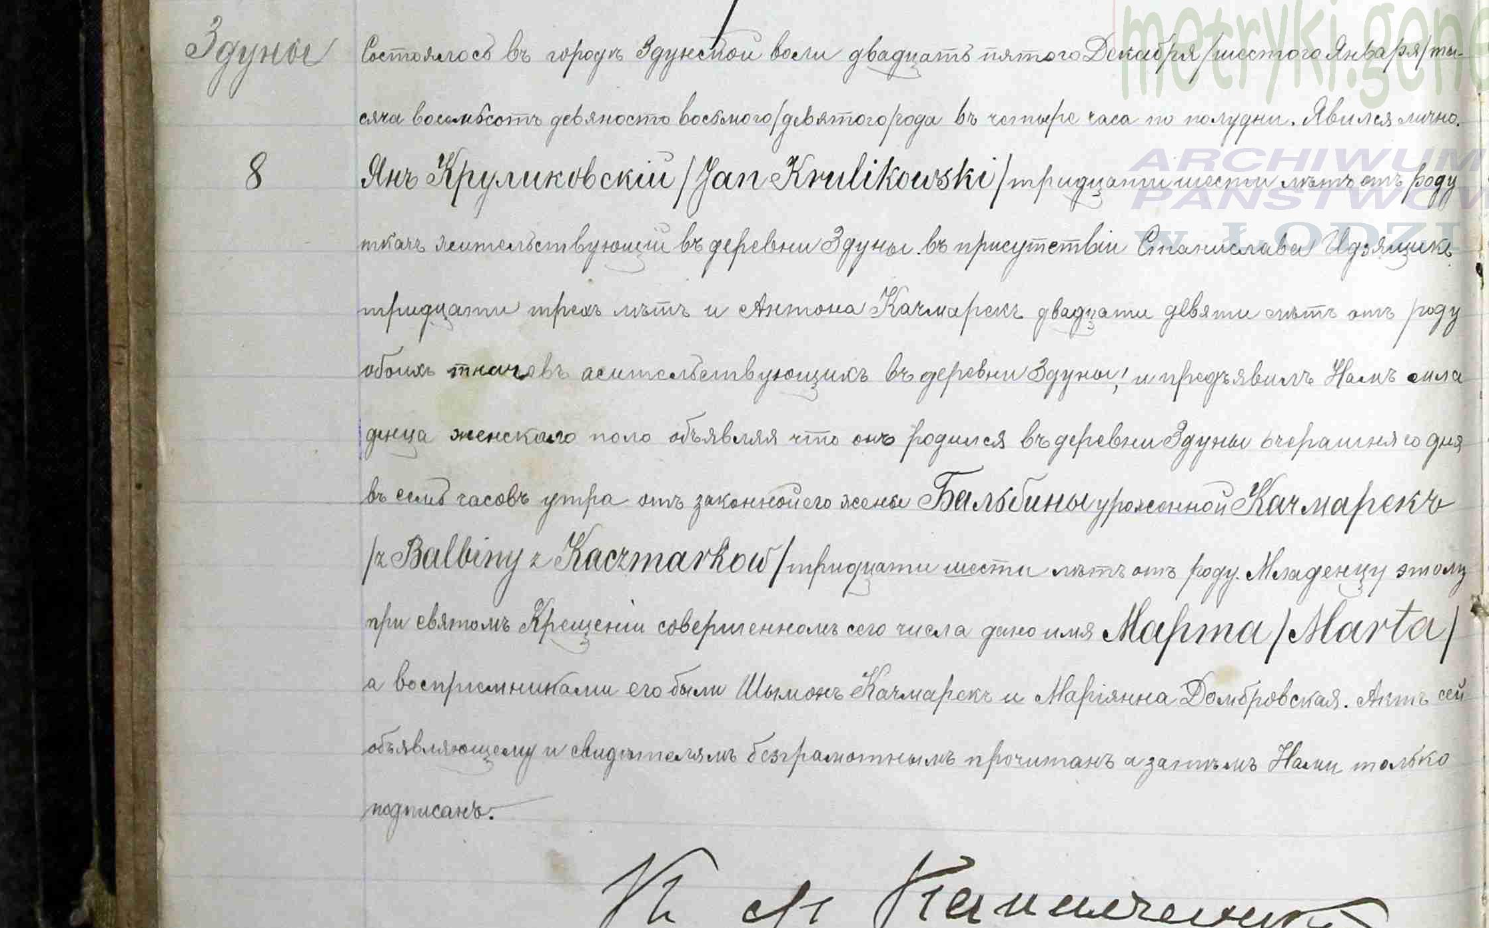 Здуны
Состоялось въ городѣ Здунской воли двадцать пятого Декабря /шестого Января/ ты-
сяча восемьсотъ девяносто восьмого /девятого/ года въ четыре часа по полудни. Явился лично.
8
Янъ Круликовскій /Jan Krulikowski/ тридцати шести лѣтъ отъ роду
ткачъ жительствующій въ деревни Здуны. въ присутствіи Станислава Идзящикъ
тридцати трехъ лѣтъ и Антона Качмарекъ двадцати девяти лѣтъ отъ роду
обоихъ ткачовъ жительствующихъ въ деревни Здуны! и предъявилъ Намъ мла
денца женскаго поло объявляя что оно родился въ деревни Здуны вчерашняго дня
въ семь часовъ утра отъ законной его жены Бальбины урожонной Качмарекъ
/z Balbiny z Kaczmarków/ тридцати шести лѣтъ отъ роду. Младенцу этому
при святомъ Крещеніи совершенномъ сего числа дано имя Марта /Marta/
а воспріемниками его были Шымонъ Качмарекъ и Маріянна Домбровская. Актъ сей
объявляющему и свидѣтелямъ безграмотнымъ прочитанъ а затѣмъ Нами только
подписанъ.
metryki.gene
ARCHIWUM
PAŃSTWOW
w ŁODZI